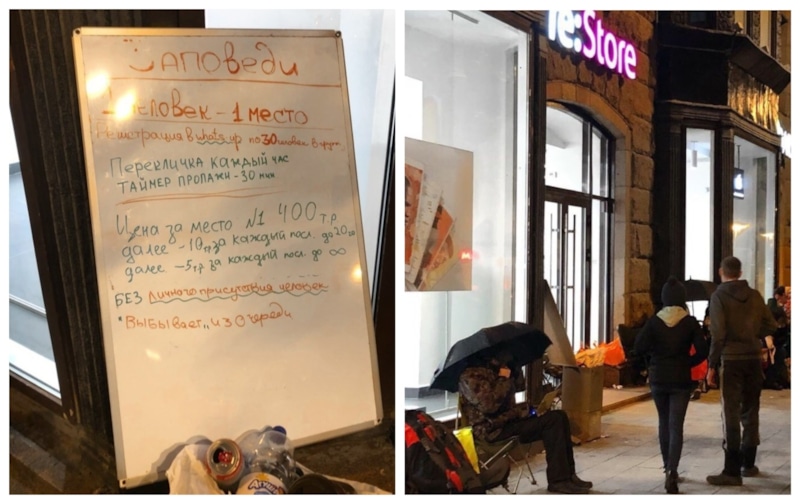 Заповеди
1 человек - 1 место
Регистрация в whats up по 30 человек в групп
Перекличка каждый час
Таймер пропажи - 30 мин
Цена за место №1 400 т.р
далее -10тр за каждый посл. до 20
далее -5тр за каждый посл. до ∞
БЕЗ личного присутствия человек
"Выбывает" из очереди
re:Store